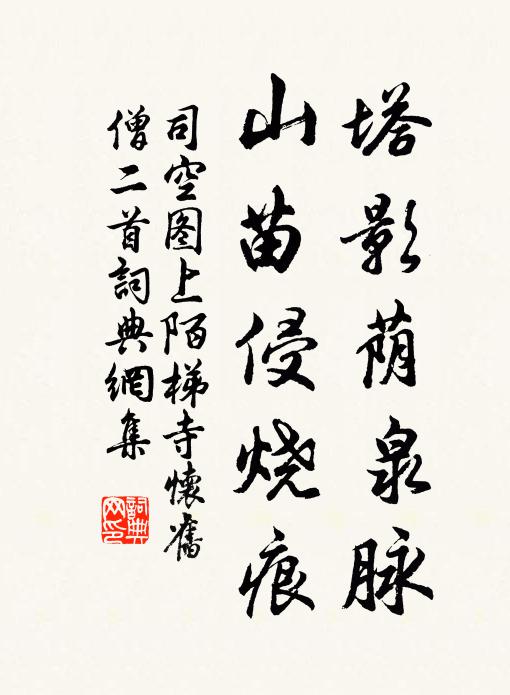 塔影荫泉脉
山苗侵烧痕
司空图上陌梯寺懷舊
僧二首詞典網集
詞典網印